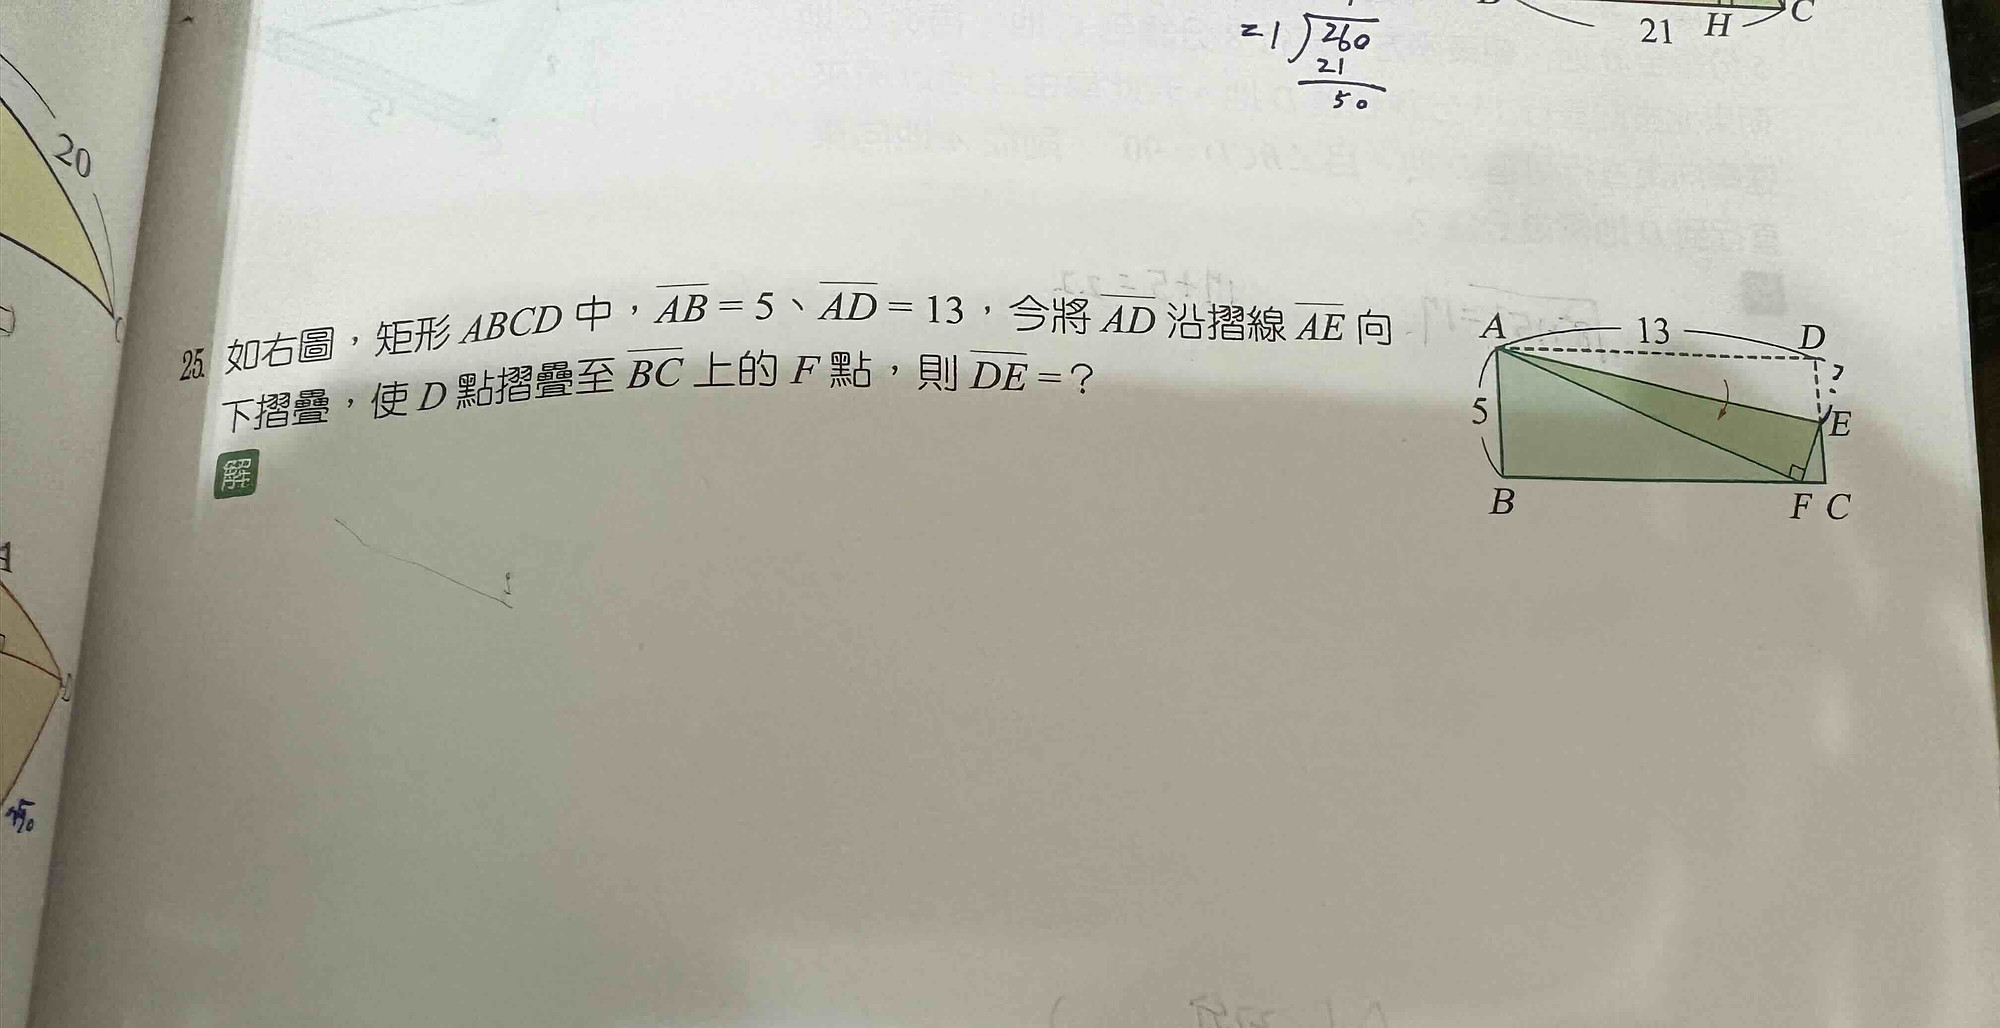 21 H C
=1 260
21
50
20
25. 如右圖，矩形 ABCD 中，AB = 5、AD = 13，今將 AD 沿摺線 AE 向
下摺疊，使 D 點摺疊至 BC 上的 F 點，則 DE = ？
解
A 13 D
?
5 E
B F C